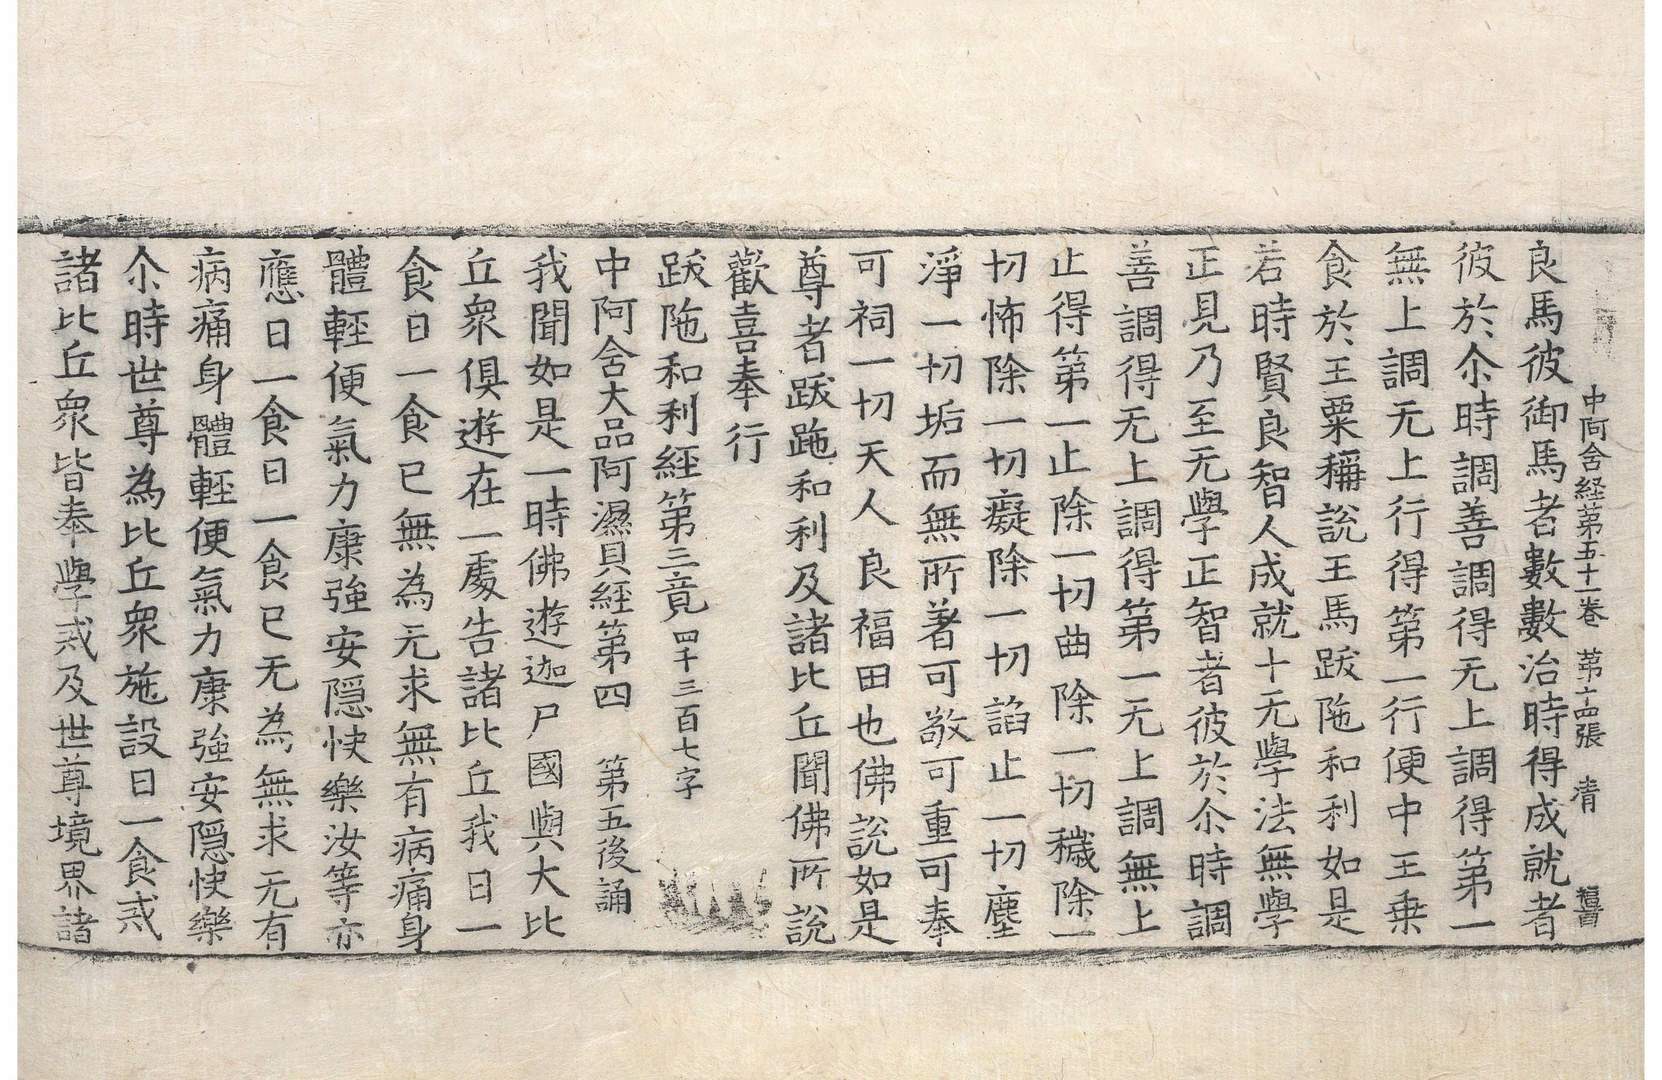 中阿含経第五十一卷 第十四張 清
良馬彼御馬者數數治時得成就者
彼於尒時調善調得无上調得第一
無上調无上行得第一行便中王乗
食於王粟稱說王馬跋陁和利如是
若時賢良智人成就十无學法無學
正見乃至无學正智者彼於尒時調
善調得无上調得第一无上調無上
止得第一止除一切曲除一切穢除一
切怖除一切癡除一切諂止一切塵
淨一切垢而無所著可敬可重可奉
可祠一切天人良福田也佛說如是
尊者跋陁和利及諸比丘聞佛所說
歡喜奉行
跋陁和利經第三竟 四千三百七字
中阿含大品阿濕貝經第四 第五後誦
我聞如是一時佛遊迦尸國與大比
丘衆俱遊在一處告諸比丘我日一
食日一食已無為无求無有病痛身
體輕便氣力康強安隠快樂汝等亦
應日一食日一食已无為無求无有
病痛身體輕便氣力康強安隠快樂
尒時世尊為比丘衆施設日一食戒
諸比丘衆皆奉學戒及世尊境界諸